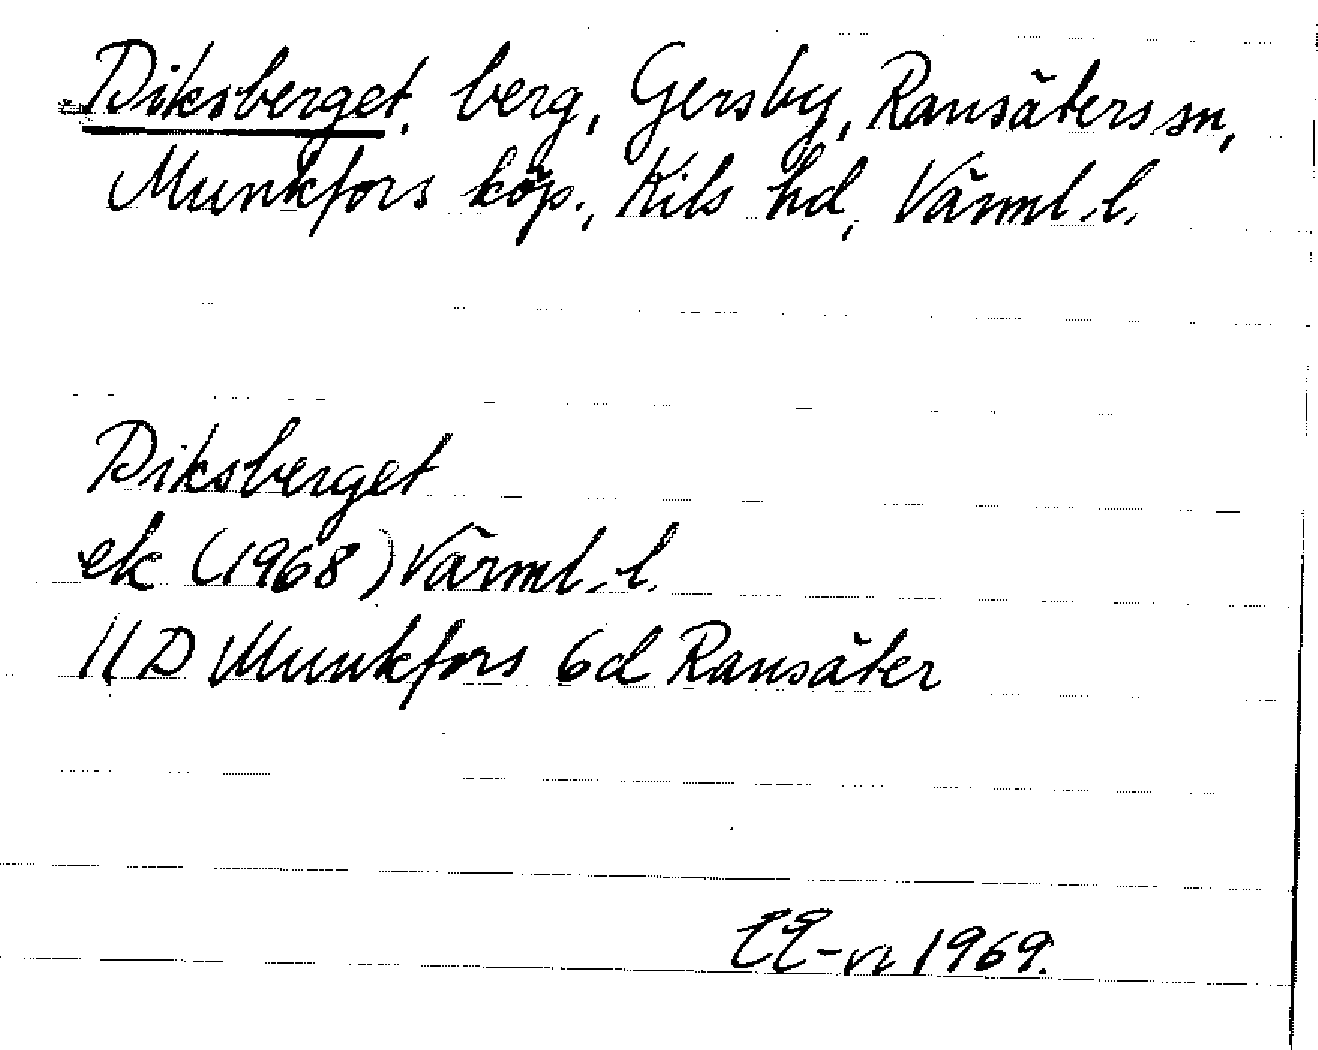 Diksberget, berg, Gersby, Ransäters sn,
Munkfors köp., Kils hd, Värml. l.
Diksberget
ek (1968) Värml. l.
11D Munkfors 6d Ransäter
1969.